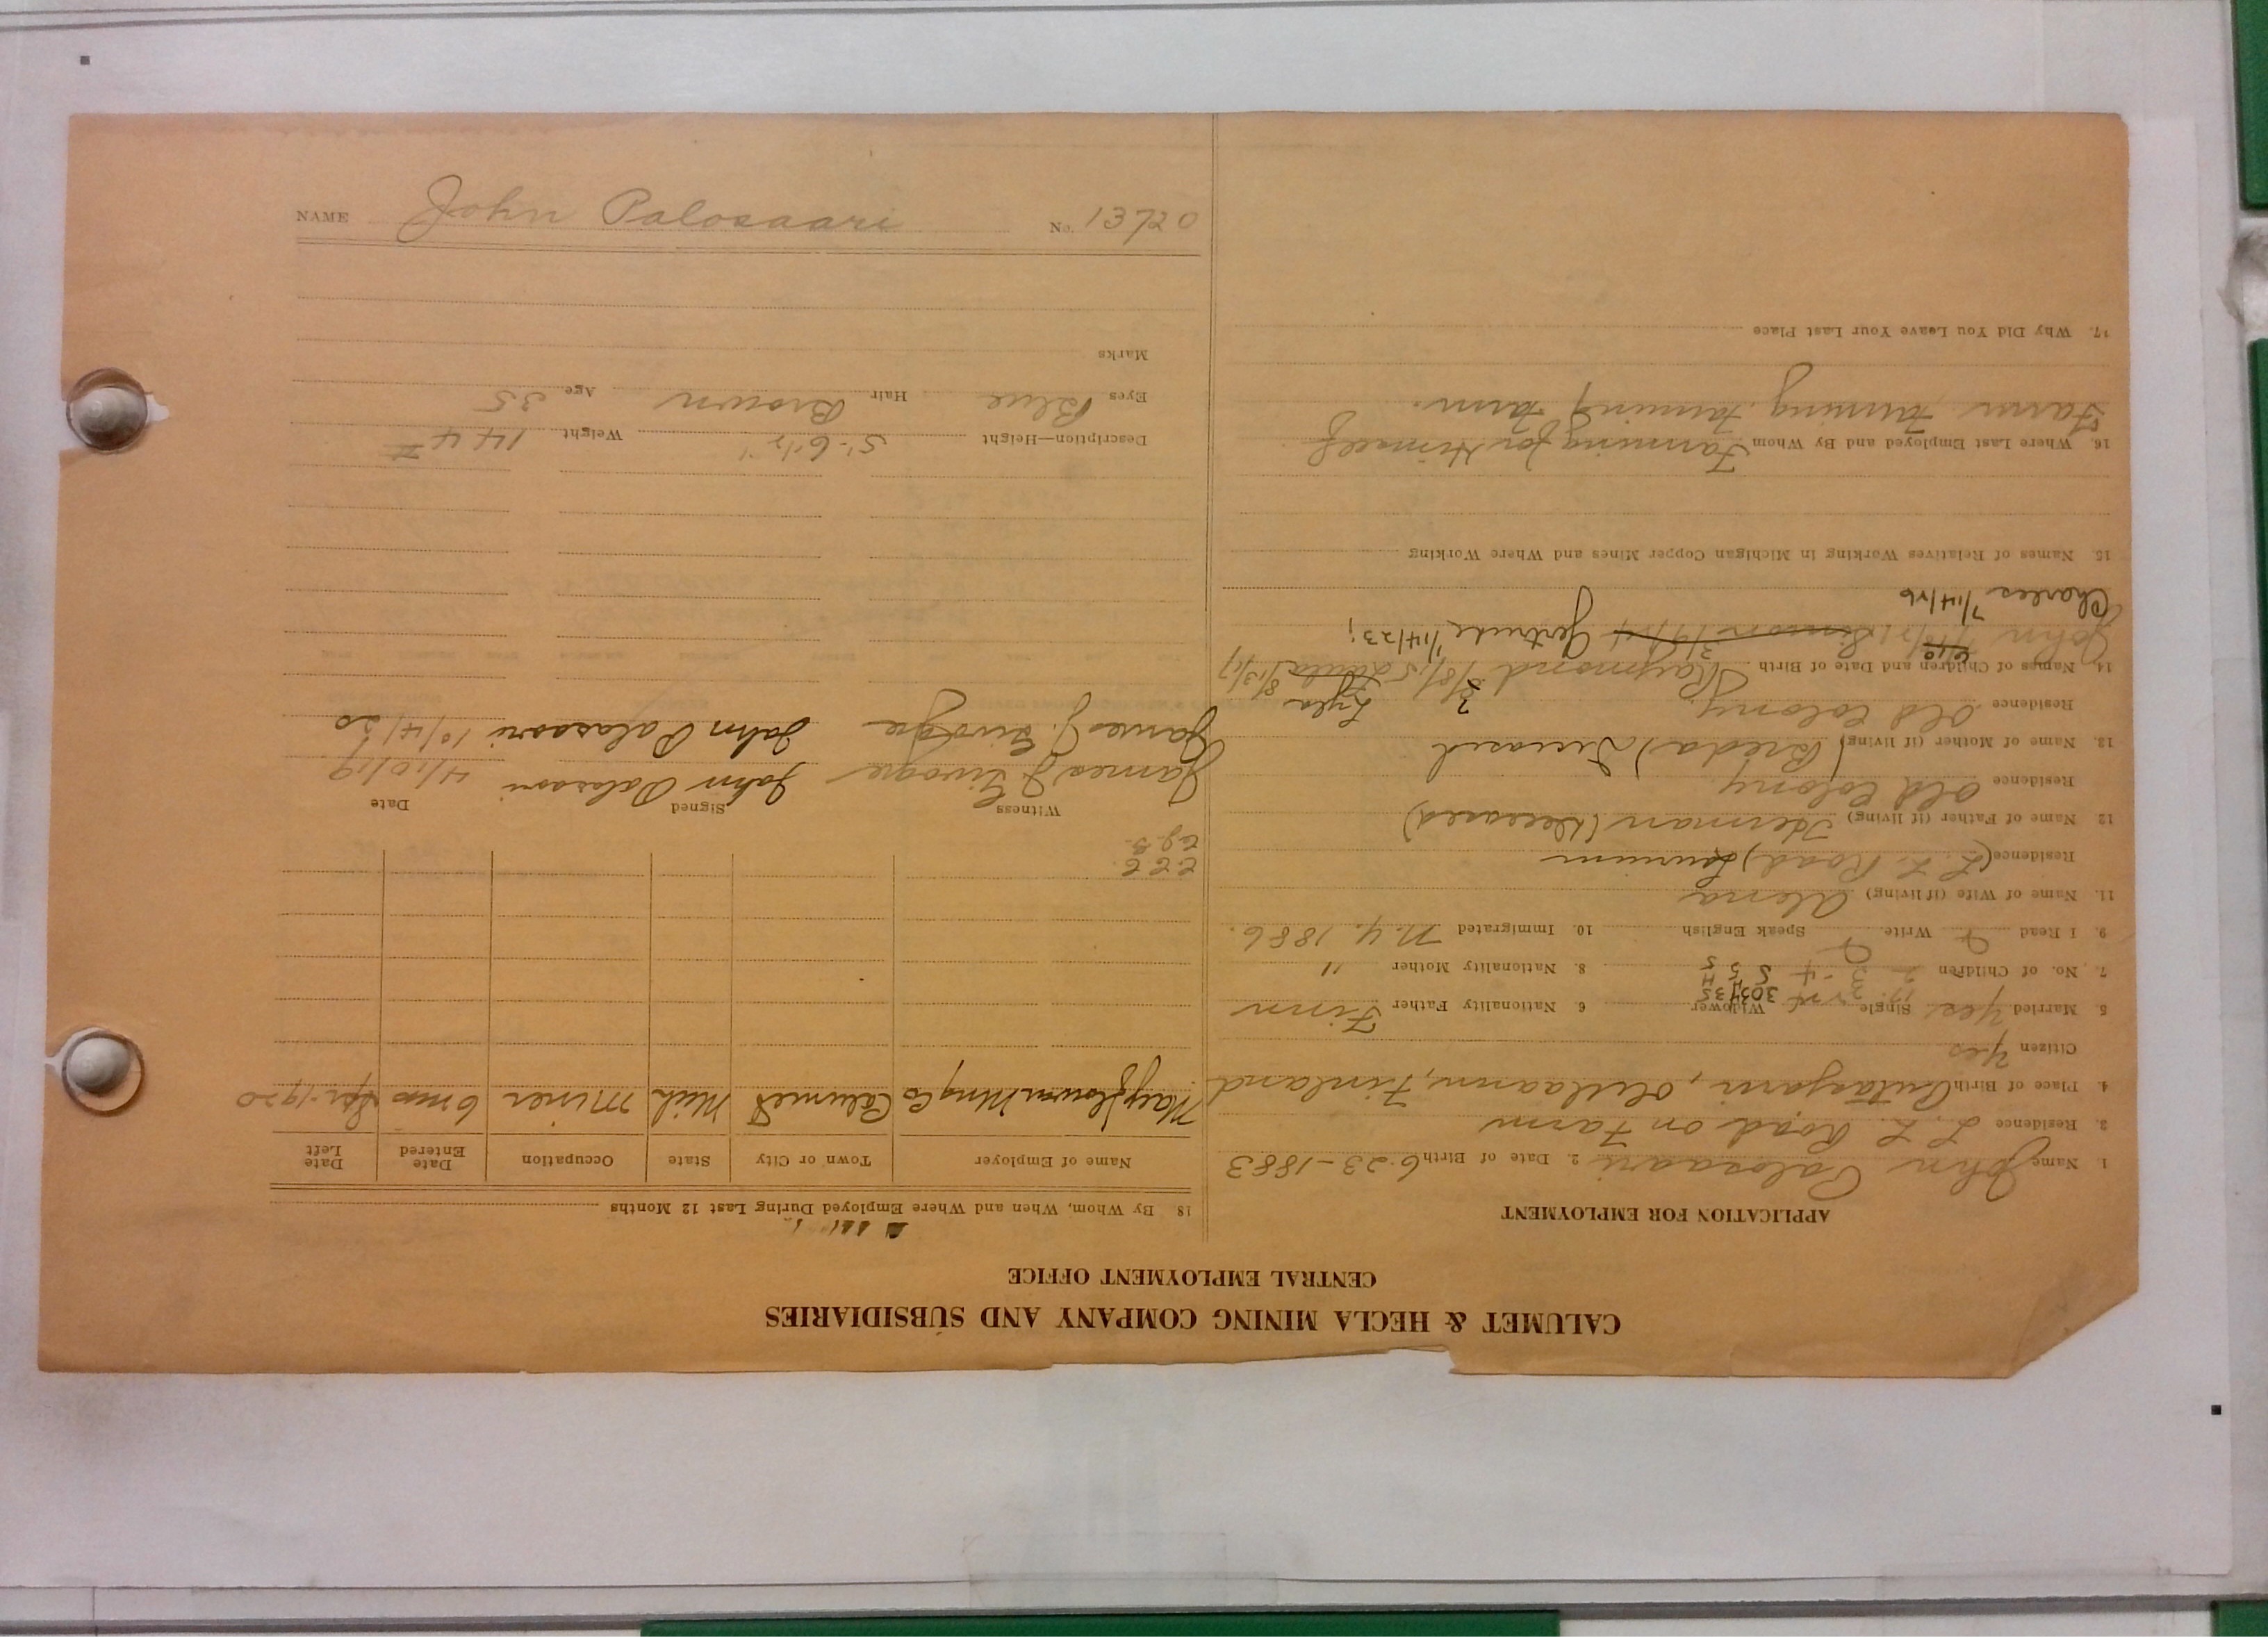 CALUMET & HECLA MINING COMPANY AND SUBSIDIARIES
CENTRAL EMPLOYMENT OFFICE
APPLICATION FOR EMPLOYMENT
1. Name John Palosaari 2. Date of Birth 6-23-1883
3. Residence L. L. Road on Farm
4. Place of Birth Finland
Citizen Yes
5. Married Yes Single Widower 6. Nationality Father Finn
7. No. of Children 8. Nationality Mother "
9. I Read Write Speak English 10. Immigrated N.Y. 1886.
11. Name of Wife (if living) Alema
Residence (L. L. Road) Laurium
12. Name of Father (if living) Herman (Deceased)
Residence Old Colony
13. Name of Mother (if living) (Breda) Deceased
Residence Old Colony
Lyla
14. Names of Children and Date of Birth Raymond 8/15 8/13/17
John Gertrude 1/14/23;
Charles 7/14/26
15. Names of Relatives Working in Michigan Copper Mines and Where Working
16. Where Last Employed and By Whom Farming for Himself
Farm Farming Farm.
17. Why Did You Leave Your Last Place
18. By Whom, When and Where Employed During Last 12 Months
Name of Employer Town or City State Occupation Date Entered Date Left
Mayflower Mng Co Calumet Mich Miner 6 mos Apr-1920
Witness Signed Date
James J. John Palosaari 4/10/19
James J. John Palosaari 10/4/20
Description—Height 5'-6½" Weight 144 #
Eyes Blue Hair Brown Age 35
Marks
NAME John Palosaari No. 13720